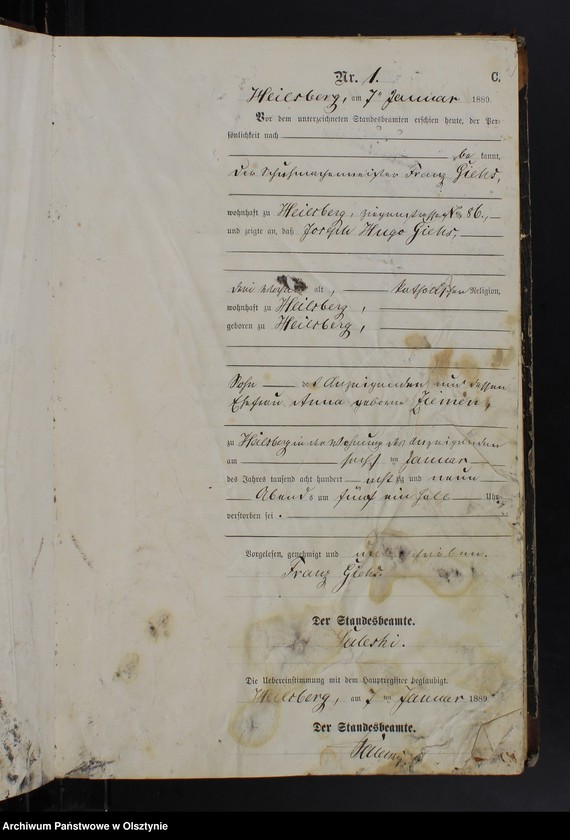 Nr. 1. C.
Heilsberg, am 7ten Januar 1889.
Vor dem unterzeichneten Standesbeamten erschien heute, der Per-
sönlichkeit nach
be kannt,
der Schuhmachermeister Franz Giehs,
wohnhaft zu Heilsberg, No 86.,
und zeigte an, daß Joseph Hugo Giehs,
alt, katholischer Religion,
wohnhaft zu Heilsberg,
geboren zu Heilsberg,
Sohn des Anzeigenden und dessen
Ehefrau Anna geborne
zu Heilsberg in der Wohnung des Anzeigenden
am sechsten Januar
des Jahres tausend acht hundert achtzig und neun
Abends um fünf ein halb Uhr
verstorben sei.
Vorgelesen, genehmigt und unterschrieben.
Franz Giehs.
Der Standesbeamte.
Die Uebereinstimmung mit dem Hauptregister beglaubigt.
Heilsberg, am 7ten Januar 1889
Der Standesbeamte.
Archiwum Państwowe w Olsztynie